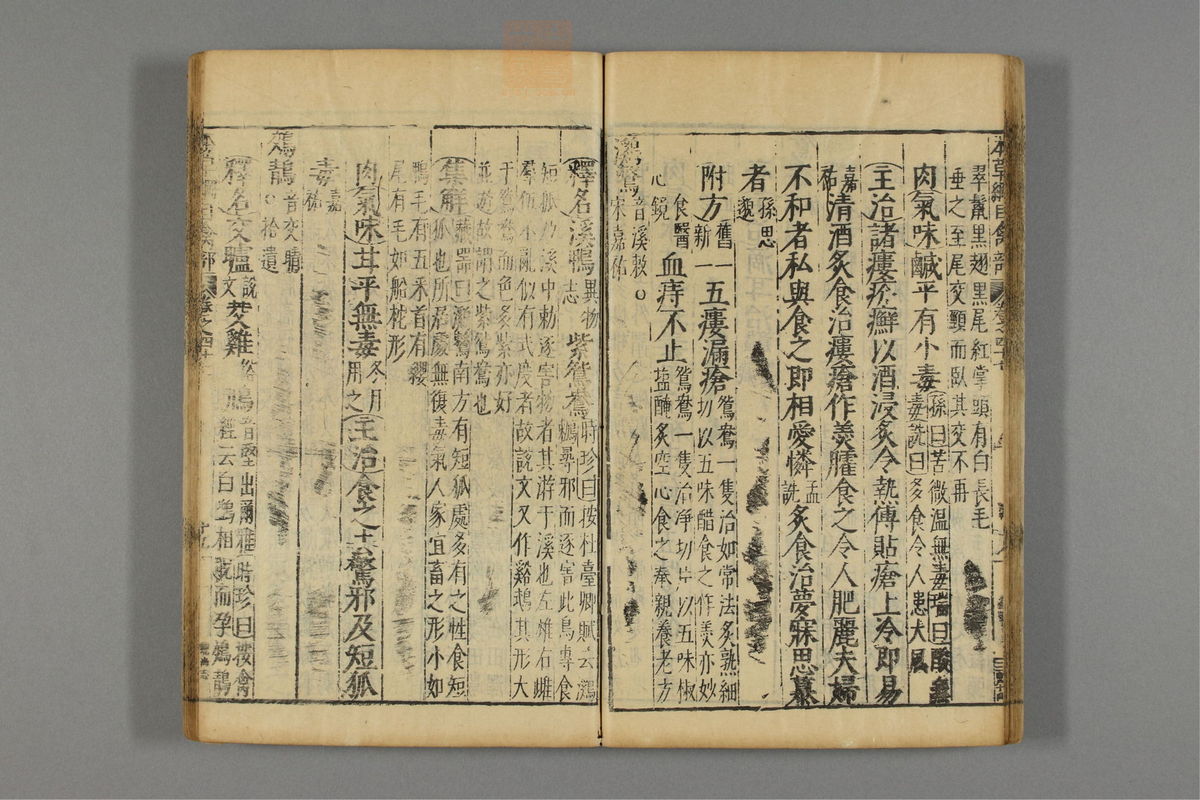 本草綱目禽部
翠鬣黑翅黑尾紅掌頭有白長毛
垂之至尾交頸而臥其交不再
肉氣味鹹平有小毒孫曰苦微溫無毒瑞曰酸無
毒詵曰多食令人患大風
主治諸瘻疥癬以酒浸炙令熱傅貼瘡上冷即易
嘉祐清酒炙食治瘻瘡作羹臛食之令人肥麗夫婦
不和者私與食之即相愛憐孟詵炙食治夢寐思慕
者孫思邈
附方舊一新一五瘻漏瘡鴛鴦一隻治如常法炙熟細
切以五味醋食之作羹亦妙
食醫心鏡血痔不止鴛鴦一隻治淨切片以五味椒
鹽醃炙空心食之奉親養老方
鸂鶒音溪敕○宋嘉祐
釋名溪鴨異物志紫鴛鴦時珍曰按杜臺卿賦云鸂
鶒尋邪而逐害此鳥專食
短狐乃溪中敕逐害物者其游于溪也左雄右雌
羣伍不亂似有式度者故說文又作谿鶒其形大
于鴛鴦而色多紫亦好
並遊故謂之紫鴛鴦也
集解藏器曰鸂鶒南方有短狐處多有之性食短
狐也所居處無復毒氣人家宜畜之形小如
鴨毛有五采首有纓
尾有毛如船柁形
肉氣味甘平無毒冬月用之主治食之去驚邪及短狐
毒嘉祐
鵁鶄音交睛○拾遺
釋名交矑說文茭雞
鳽音堅出爾雅時珍曰按禽
經云白鳽相睨而孕鵁鶄